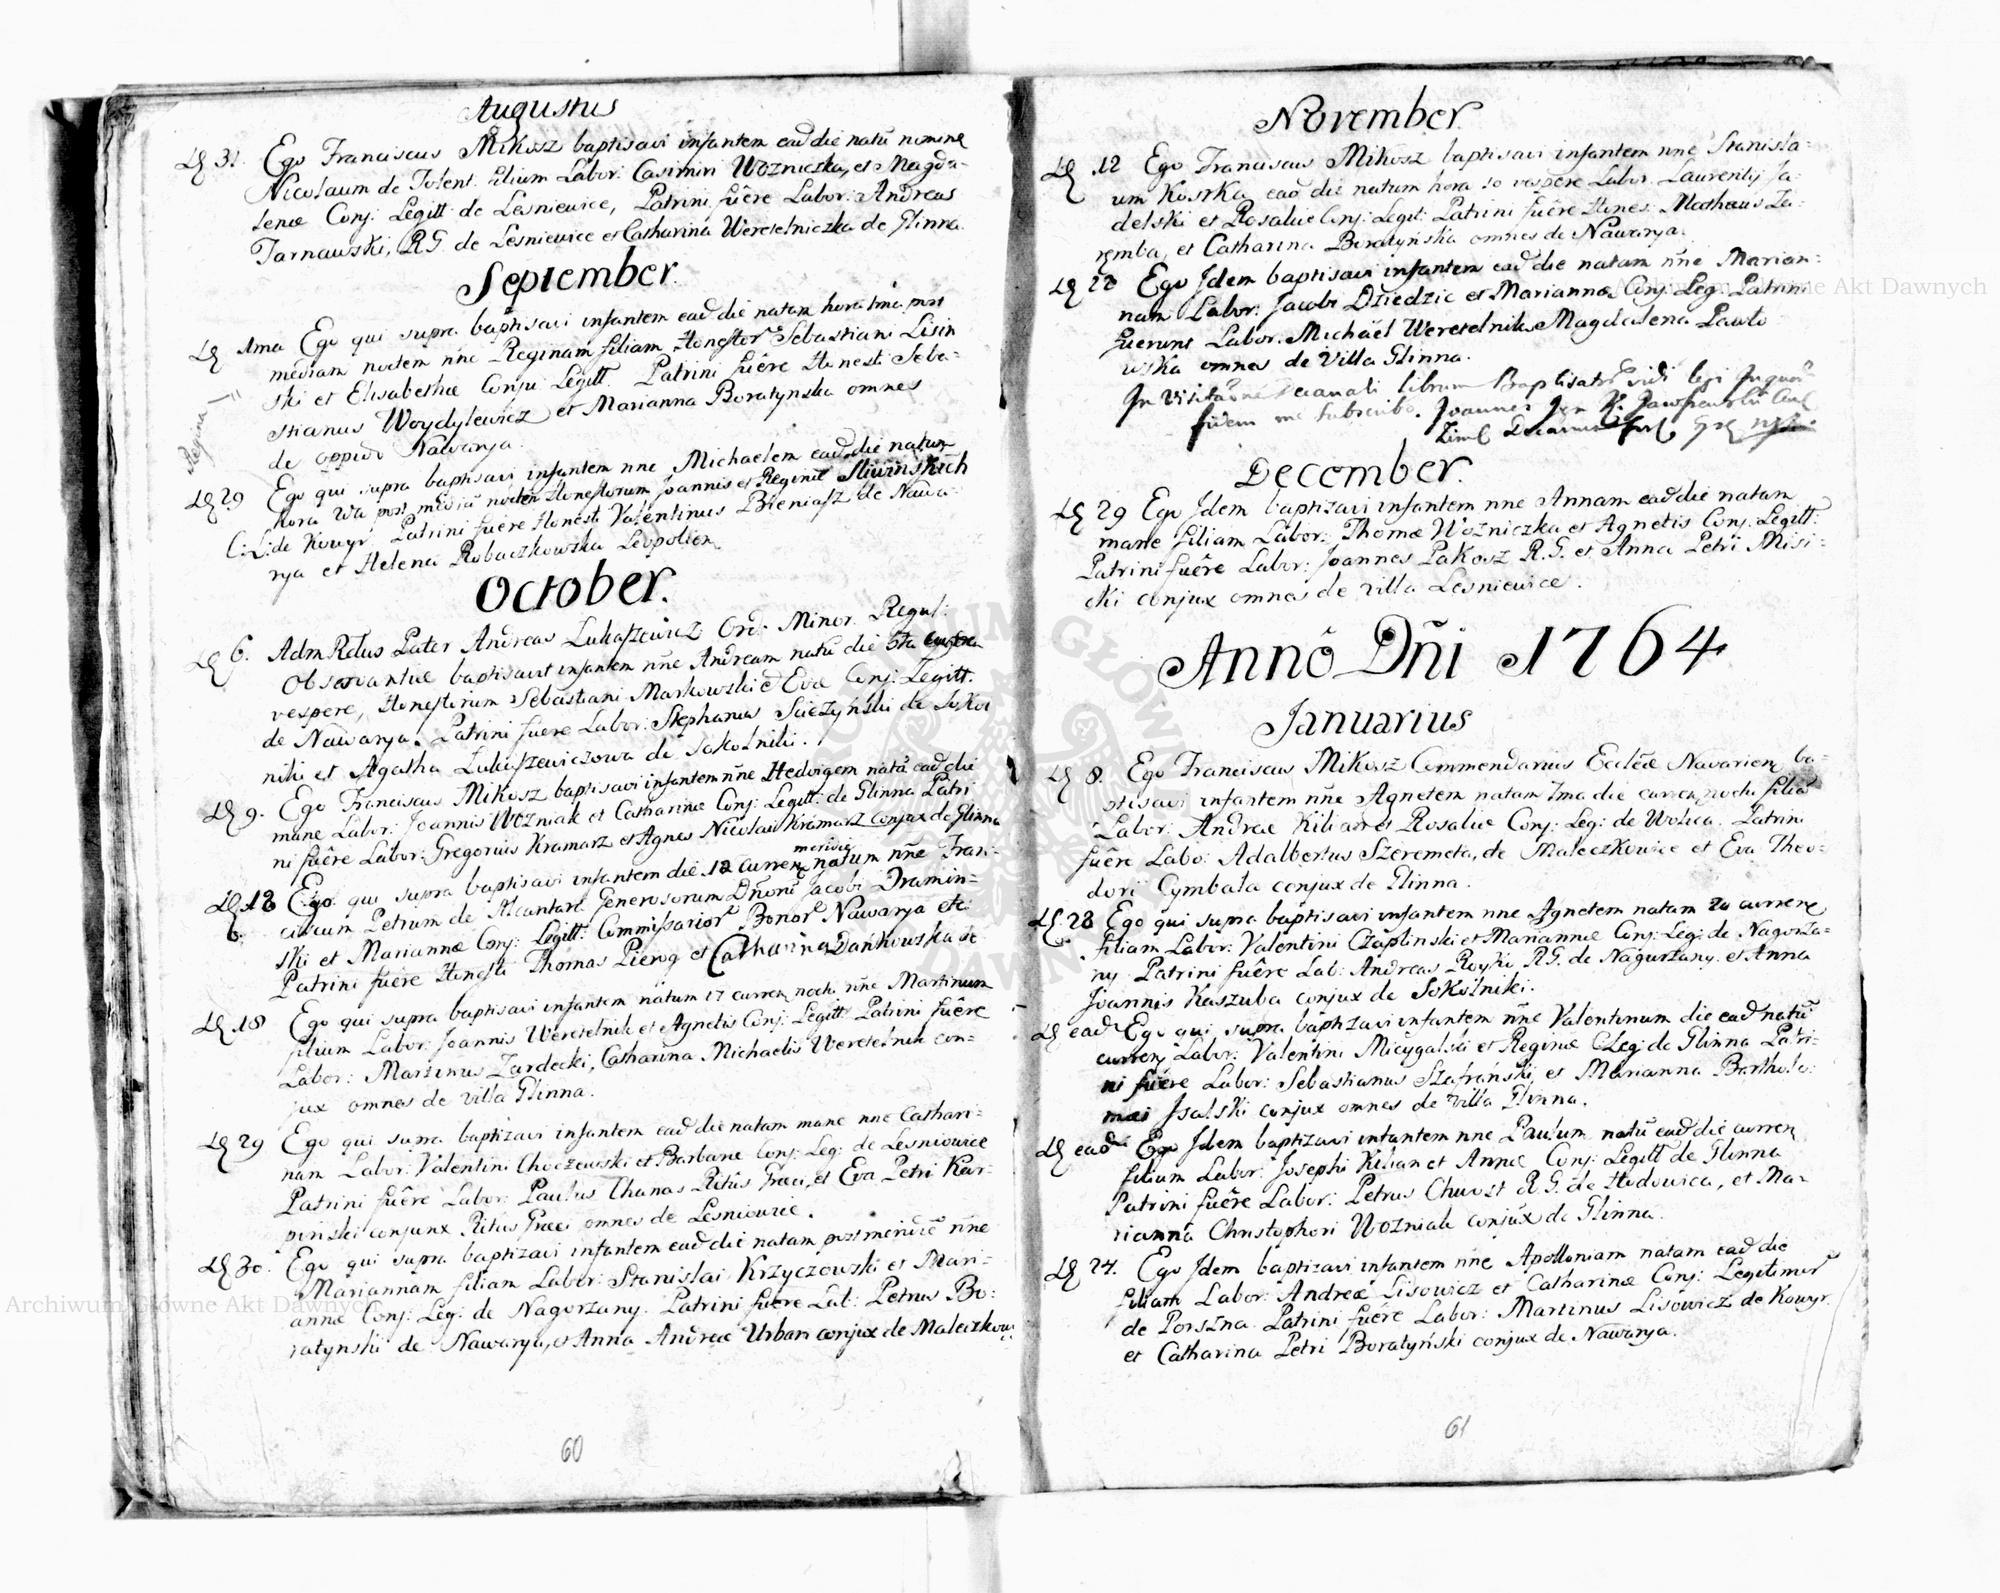 Augustus
D 31. Ego Franciscus Mikosz baptisavi infantem eadd die natũ nomine
Nicolaum de Tolent: filium Labor: Casimiri Wozniczka, et Magda-
lenæ Conj: Legitt: de Lesniewice, Patrini fuêre Labor: Andreas
Tarnawski, R.G. de Lesniewice et Catharina Weretelniczka de Glinna.
September.
D 1ma Ego qui supra baptisavi infantem ead die natam hora 1ma post
mediam noctem nñe Reginam filiam Honestor: Sebastiani Lisin
ski et Elisabethæ Conju: Legitt. Patrini fuêre Honesti Seba-
stianus Woydylewicz et Marianna Boratynska omnes
de oppido Nawarya.
Regina
D 29 Ego qui supra baptisavi infantem nñe Michaelem ead die natum
hora 2da post mediã noctem Honestorum Joannis et Reginæ Sliwinskich
C:L: de Kowyr Patrini fuere Honesti Valentinus Bieniasz de Nawa-
rya et Helena Robaczkowska Leopolien
October.
D 6. Adm Rdus Pater Andreas Lukaszewicz Ord: Minor: Regul:
Observantiæ baptisavit infantem nñe Andream natũ die 5ta
vespere, Honestorum Sebastiani Markowski et Evæ Conj: Legitt.
de Nawarya. Patrini fuere Labor: Stephanus Sciezyński de Sokol
niki et Agatha Lukaszewiczowa de Sokolniki.
D 9. Ego Franciscus Mikosz baptisavi infantem nñe Hedvigem natã ead die
mane Labor: Joannis Wozniak et Catharinæ Conj: Legitt: de Glinna Patri
ni fuêre Labor: Gregorius Kramarz et Agnes Nicolai Kramarz Conjux de Glinna
meridie
D 13 Ego qui supra baptisavi infantem die 12 curren natum nñe Fran-
ciscum Petrum de Alcantara Generosorum Dñorũ Jacobi Dramin-
ski et Mariannæ Conj: Legitt: Commissarior: Bonor: Nawarya etc
Patrini fuêre Honesti Thomas Pierog et Catharina Dańkowska de
D 18 Ego qui supra baptisavi infantem natum 17 curren noctu nñe Martinum
filium Labor: Joannis Weretelnik et Agnetis Conj: Legitt: Patrini fuêre
Labor: Martinus Zardecki, Catharina Michaelis Weretelnik con-
jux omnes de villa Glinna.
D 29 Ego qui supra baptizavi infantem ead die natam mane nñe Cathari-
nam Labor: Valentini Choczewski et Barbaræ Conj: Leg: de Lesniowice
Patrini fuêre Labor: Paulus Chanas Ritûs Græci, et Eva Petri Kar-
pinski conjunx Ritûs Græci omnes de Lesniowice.
D 30. Ego qui supra baptizavi infantem ead die natam post meridiẽ nñe
Mariannam filiam Labor: Stanislai Krzyczowski et Mari-
annæ Conj: Leg: de Nagorzany. Patrini fuêre Lab: Petrus Bo-
ratynski de Nawarya, et Anna Andreæ Urban conjux de Maleczkow:
60
November.
D 12 Ego Franciscus Mikosz baptisavi infantem nñe Stanisla-
um Kostka ead die natum hora 10 vespere Labor: Laurentij Ja-
delski et Rosaliæ Conj: Legit: Patrini fuêre Hones: Mathæus Za-
remba, et Catharina Boratyńska omnes de Nawarya.
D 23 Ego Jdem baptisavi infantem ead die natam nñe Marian-
nam Labor: Jacobi Dziedzic et Mariannæ Conj: Leg: Patrini
fuerunt Labor: Michael Weretelnik, Magdalena Pawlo
wska omnes de Villa Glinna.
In Visitaõne Decanali librum Baptisatorũ vidi legi In quorũ
fidem me subscribo. Joannes
December.
D 29 Ego Jdem baptizavi infantem nñe Annam ead die natam
mane filiam Labor: Thomæ Wozniczka et Agnetis Conj: Legitt:
Patrini fuêre Labor: Joannes Pakosz R.G. et Anna Petri Misi-
cki conjux omnes de villa Lesniewice.
Annô Dñi 1764
Januarius
D 8. Ego Franciscus Mikosz Commendarius Ecclæ Navarien ba-
ptisavi infantem nñe Agnetem natam 7ma die curren noctu filiã
Labor: Andreæ Kilian et Rosaliæ Conj: Leg: de Wolica. Patrini
fuêre Labo: Adalbertus Szeremeta, de Maleczkowice et Eva Theo-
dori Cymbala conjux de Glinna.
D 23 Ego qui supra baptisavi infantem nñe Agnetem natam 20 curren
filiam Labor: Valentini Czaplinski et Mariannæ Conj: Leg: de Nagorza-
ny. Patrini fuêre Lab: Andreas Royko R.G. de Nagorzany. et Anna
Joannis Kaszuba conjux de Sokolniki.
D ead Ego qui supra baptizavi infantem nñe Valentinum die ead natũ
curren Labor: Valentini Micygalski et Reginæ C Leg: de Glinna Patri-
ni fuêre Labor: Sebastianus Szafrański, et Marianna Bartholo-
mæi Jsalski conjux omnes de villa Glinna.
D ead Ego Jdem baptizavi infantem nñe Paulum natũ ead die curren
filium Labor: Josephi Kilian et Annæ Conj: Legitt de Glinna
Patrini fuêre Labor: Petrus Chwost R.G. de Hodowica, et Ma-
rianna Christophori Wozniak conjux de Glinna.
D 24. Ego Jdem baptizavi infantem nñe Apolloniam natam ead die
filiam Labor: Andreæ Lisowicz et Catharinæ Conj: Legitimor
de Porszna Patrini fuêre Labor: Martinus Lisowicz de Kowyr.
et Catharina Petri Boratyński conjux de Nawarya.
61
Archiwum Główne Akt Dawnych
Archiwum Główne Akt Dawnych
ARCHIWUM GŁÓWNE AKT DAWNYCH